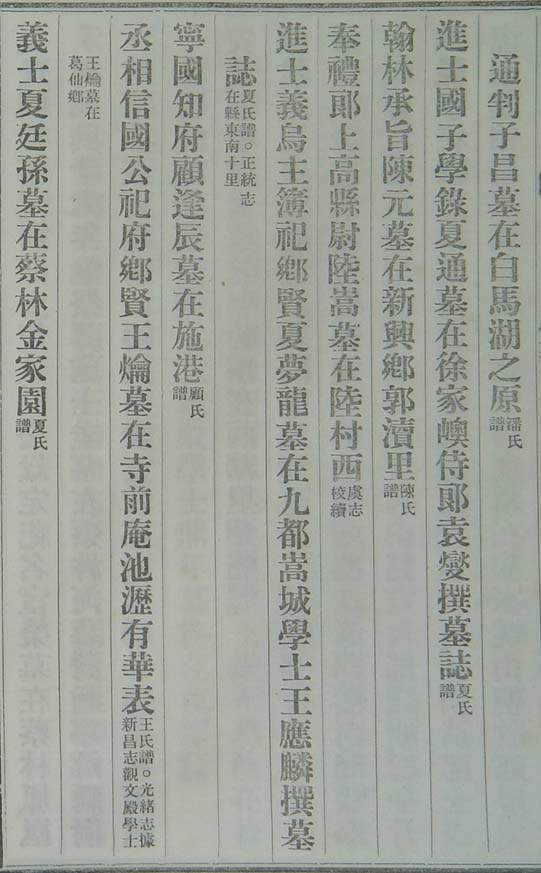 通判子昌墓在白馬湖之原潘氏譜
進士國子學錄夏通墓在徐家嶴侍郞袁燮撰墓誌夏氏譜
翰林承旨陳元墓在新興鄉郭瀆里陳氏譜
奉禮郞上高縣尉陸嵩墓在陸村西虞志校續
進士義烏主簿祀鄉賢夏夢龍墓在九都嵩城學士王應麟撰墓
誌夏氏譜○正統志在縣東南十里
寧國知府顧逢辰墓在施港顧氏譜
丞相信國公祀府鄉賢王爚墓在寺前庵池瀝有華表王氏譜○光緒志據新昌志觀文殿學士
王爚墓在葛仙鄉
義士夏廷孫墓在蔡林金家園夏氏譜